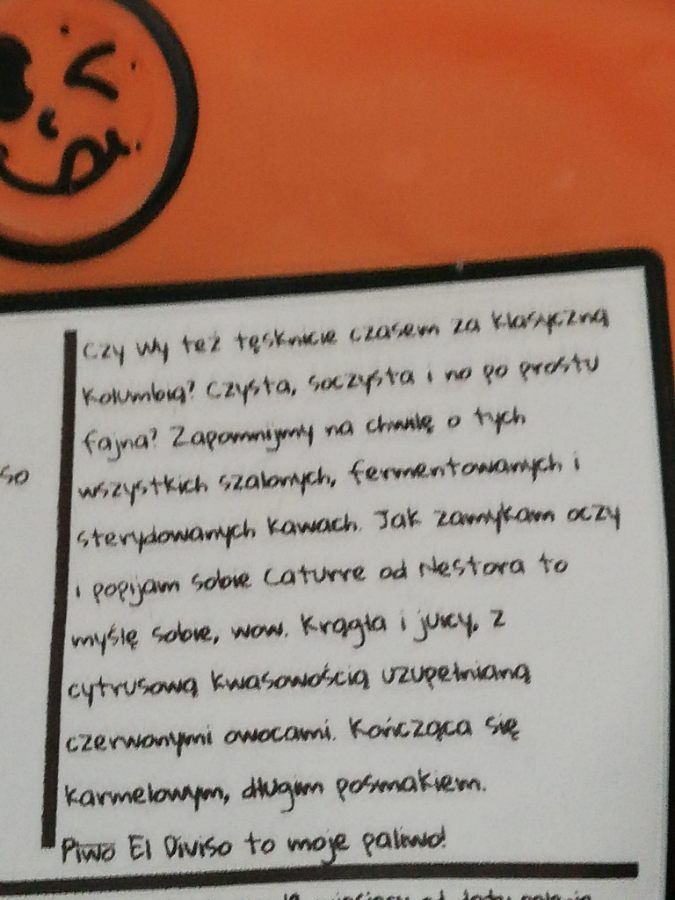 Czy Wy też tęsknicie czasem za klasyczną
Kolumbią? Czysta, soczysta i no po prostu
fajna? Zapomnijmy na chwilę o tych
so
wszystkich szalonych, fermentowanych i
sterydowanych kawach. Jak zamykam oczy
i popijam sobie Caturre od Nestora to
myślę sobie, wow. Krągła i juicy, z
cytrusową kwasowością uzupełnianą
czerwonymi owocami. Kończąca się
karmelowym, długim posmakiem.
Piwo El Diviso to moje paliwo!